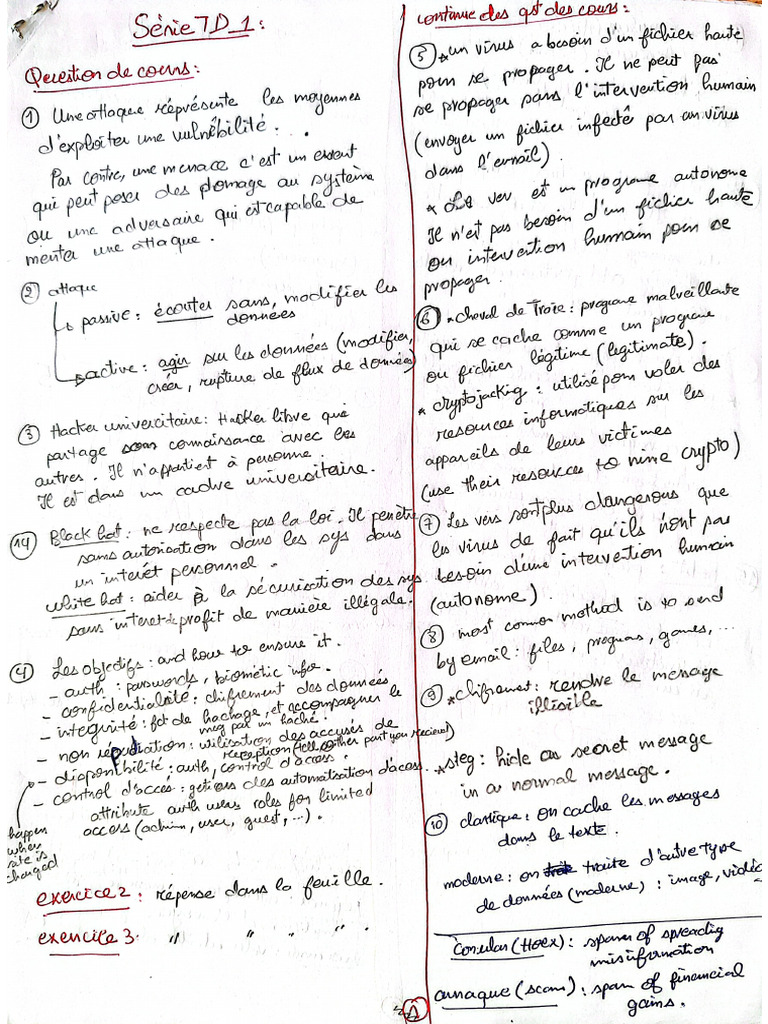 Série TD_1:
Question de cours:
① Une attaque réprésente les moyennes
d'exploiter une vulnébilité.
Par contre, une menace c'est un event
qui peut poser des domage au système
ou une adversaire qui est capable de
menter une attaque.
② attaque
passive: écouter sans, modifier les
données
active: agir sur les données (modifier,
créer, rupture de flux de données)
③ Hacker univercitaire: Hacker libre que
partage son connaissance avec les
autres. Il n'appartient à personne.
Il est dans un cadre universitaire.
⑭ Black hat: ne respecte pas la loi. Il penètre
sans autorisation dans les sys dans
un interét personnel.
white hat: aider à la sécurisation des sys
sans interet de profit de manière illégale.
④ Les objectifs: and how to ensure it.
- auth: passwords, biometic info.
- confidentialité: chifrement des données
- integrité: fct de hachage, et accompagner le
msg par un haché.
- non répudiation: utilisation des accusés de
reception (tell other part you recieved)
- disponibilité: auth, control d'accés.
- control d'accés: getions des automatisation d'acces.
attribute auth users roles for limited
access (admin, user, guest, ...).
happen
when
site is
changed
exercice 2: répense dans la feuille.
exercice 3: " " " " "
continue des qst des cours:
⑤ * un virus a besoin d'un fichier haute
pour se propager. Il ne peut pas
se propager sans l'intervention humain
(envoyer un fichier infecté par un virus
dans l'email).
* Le ver est un programe autonome
Il n'est pas besoin d'un fichier haute
ou intervention humain pour se
propager.
⑥ * cheval de Troie: programe malveillante
qui se cache comme un programe
ou fichier légitime (legitimate).
* cryptojacking: utilisé pour voler des
resources informatiques sur les
appareils de leurs victimes
(use their resources to mine crypto)
⑦ Les vers sont plus dangerous que
les virus de fait qu'ils n'ont pas
besoin d'une intervention humain
(autonome).
⑧ most common method is to send
by email: files, programs, games, ...
⑨ * chifrement: rendre le message
illisible
* steg: hide as secret message
in a normal message.
⑩ classique: on cache les messages
dans le texte.
moderne: on traite d'autre type
de données (moderne): image, vidéo
(Hoex): spam of spreading
misinformation
arnaque (scam): spam of financial
gains.